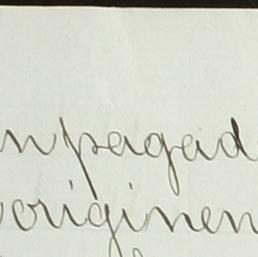 n pagad
originen